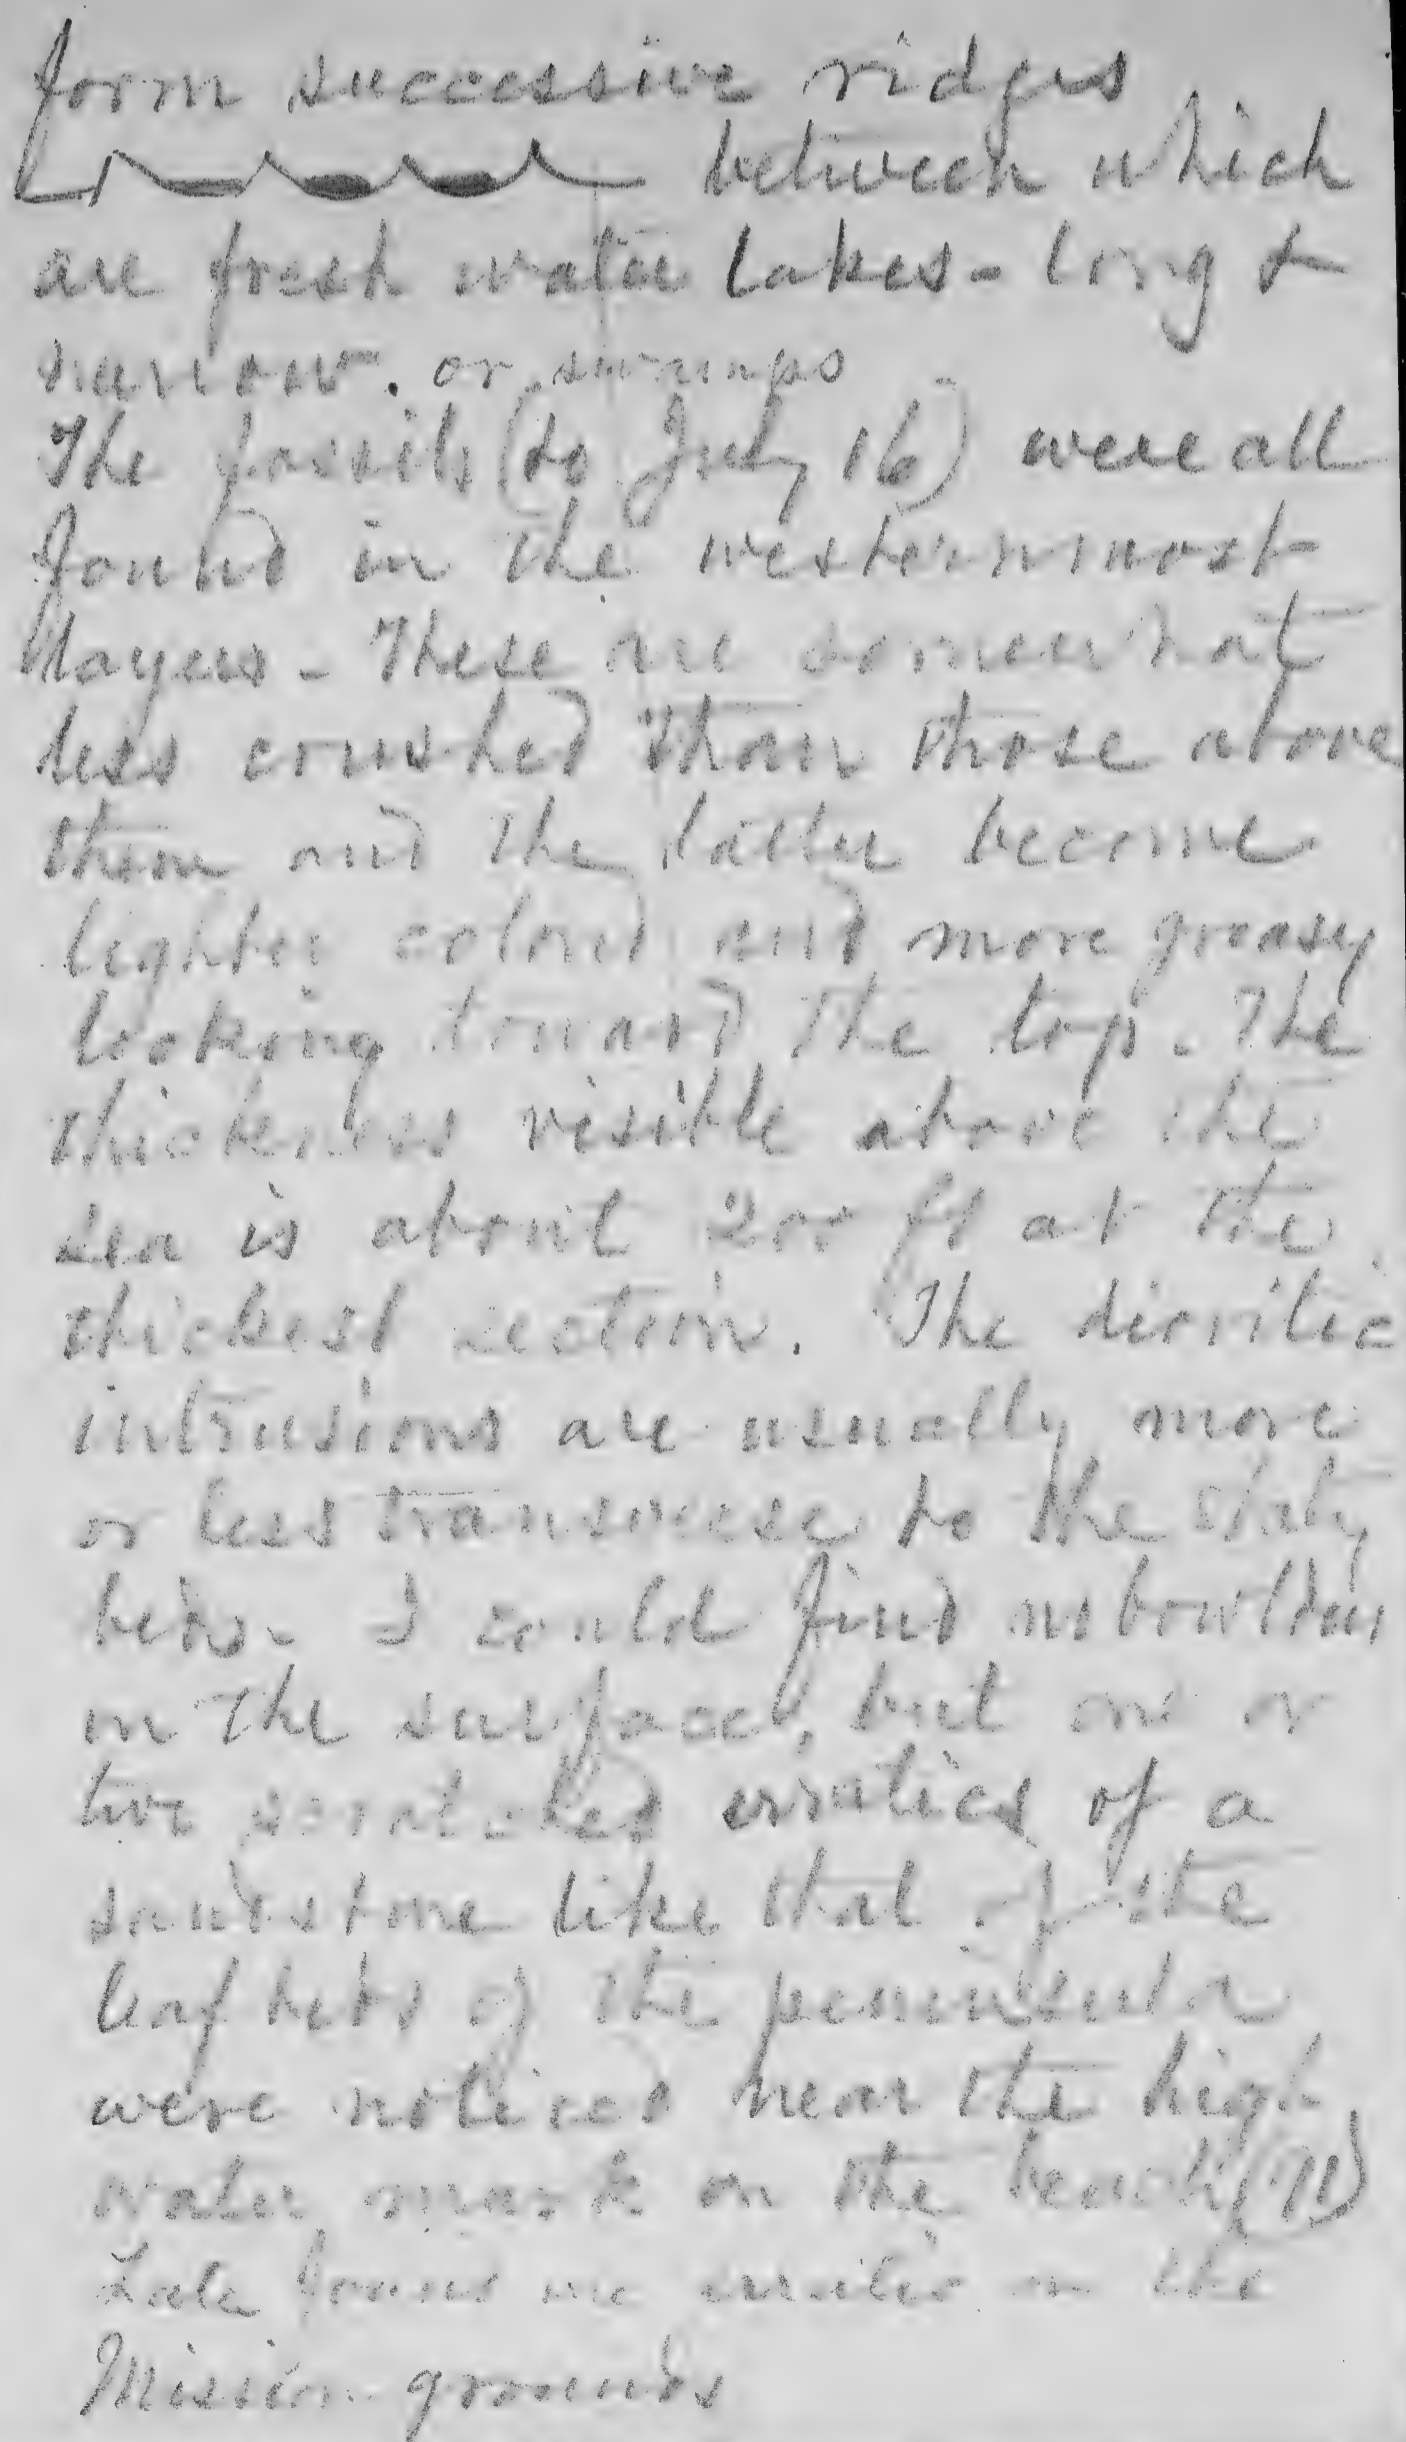 form successive ridges
between which
are fresh water lakes - long &
narrow. or swamps
The fossils (to July 16) were all
found in the westernmost
layers - These are somewhat
less crushed than those above
them and the latter become
lighter colored and more greasy
looking toward the top. The
thickness visible above the
sea is about 200 ft at the
thickest section. The dioritic
intrusions are usually more
or less transverse to the slaty
beds. I could find no bowlders
on the surface, but one or
two scratched erratics of a
sandstone like that of the
leaf beds of the peninsula
were noticed near the high
water mark on the beach
Later found one erratic on the
Mission grounds